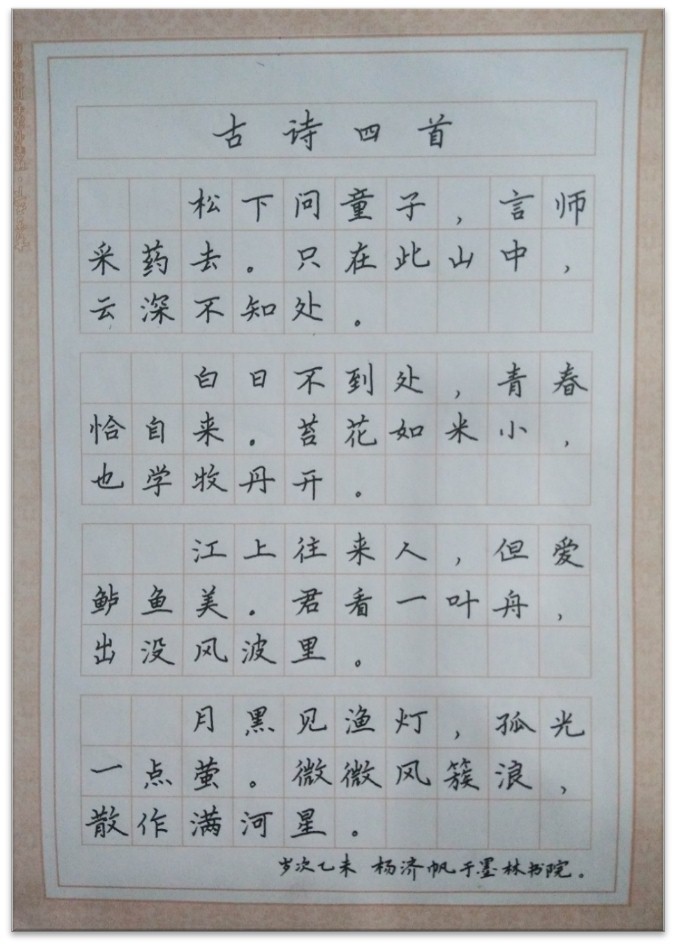 古诗四首
松下问童子，言师
采药去。只在此山中，
云深不知处。
白日不到处，青春
恰自来。苔花如米小，
也学牧丹开。
江上往来人，但爱
鲈鱼美。君看一叶舟，
出没风波里。
月黑见渔灯，孤光
一点萤。微微风簇浪，
散作满河星。
岁次乙未 杨济帆于墨林书院。